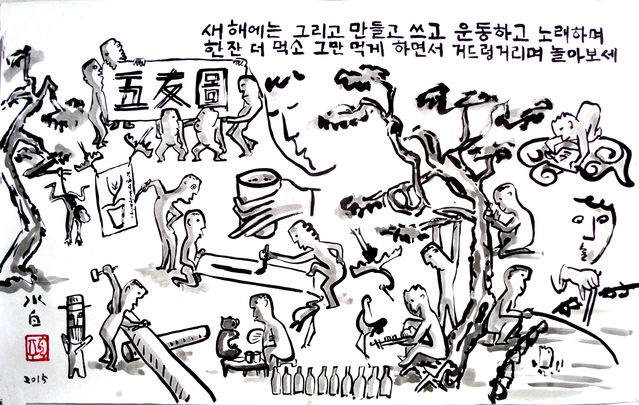 새해에는 그리고 만들고 쓰고 운동하고 노래하며
한잔 더 먹소 그만 먹게 하면서 거드렁거리며 놀아보세
五友圖
2015